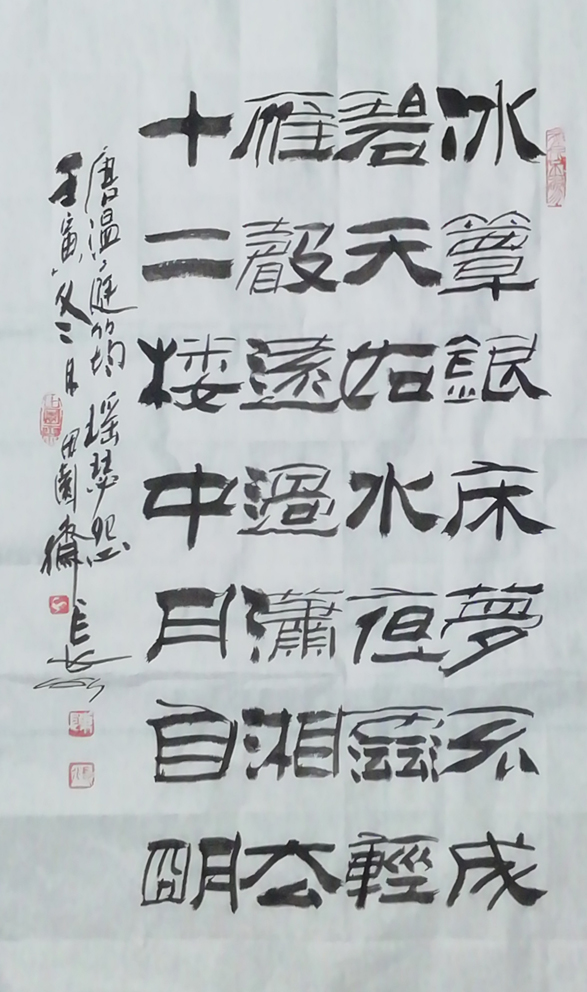 冰簟銀床夢不成
碧天如水夜雲輕
雁聲遠過瀟湘去
十二楼中月自明
唐温庭筠瑶瑟怨
壬寅八又二月田園齋長